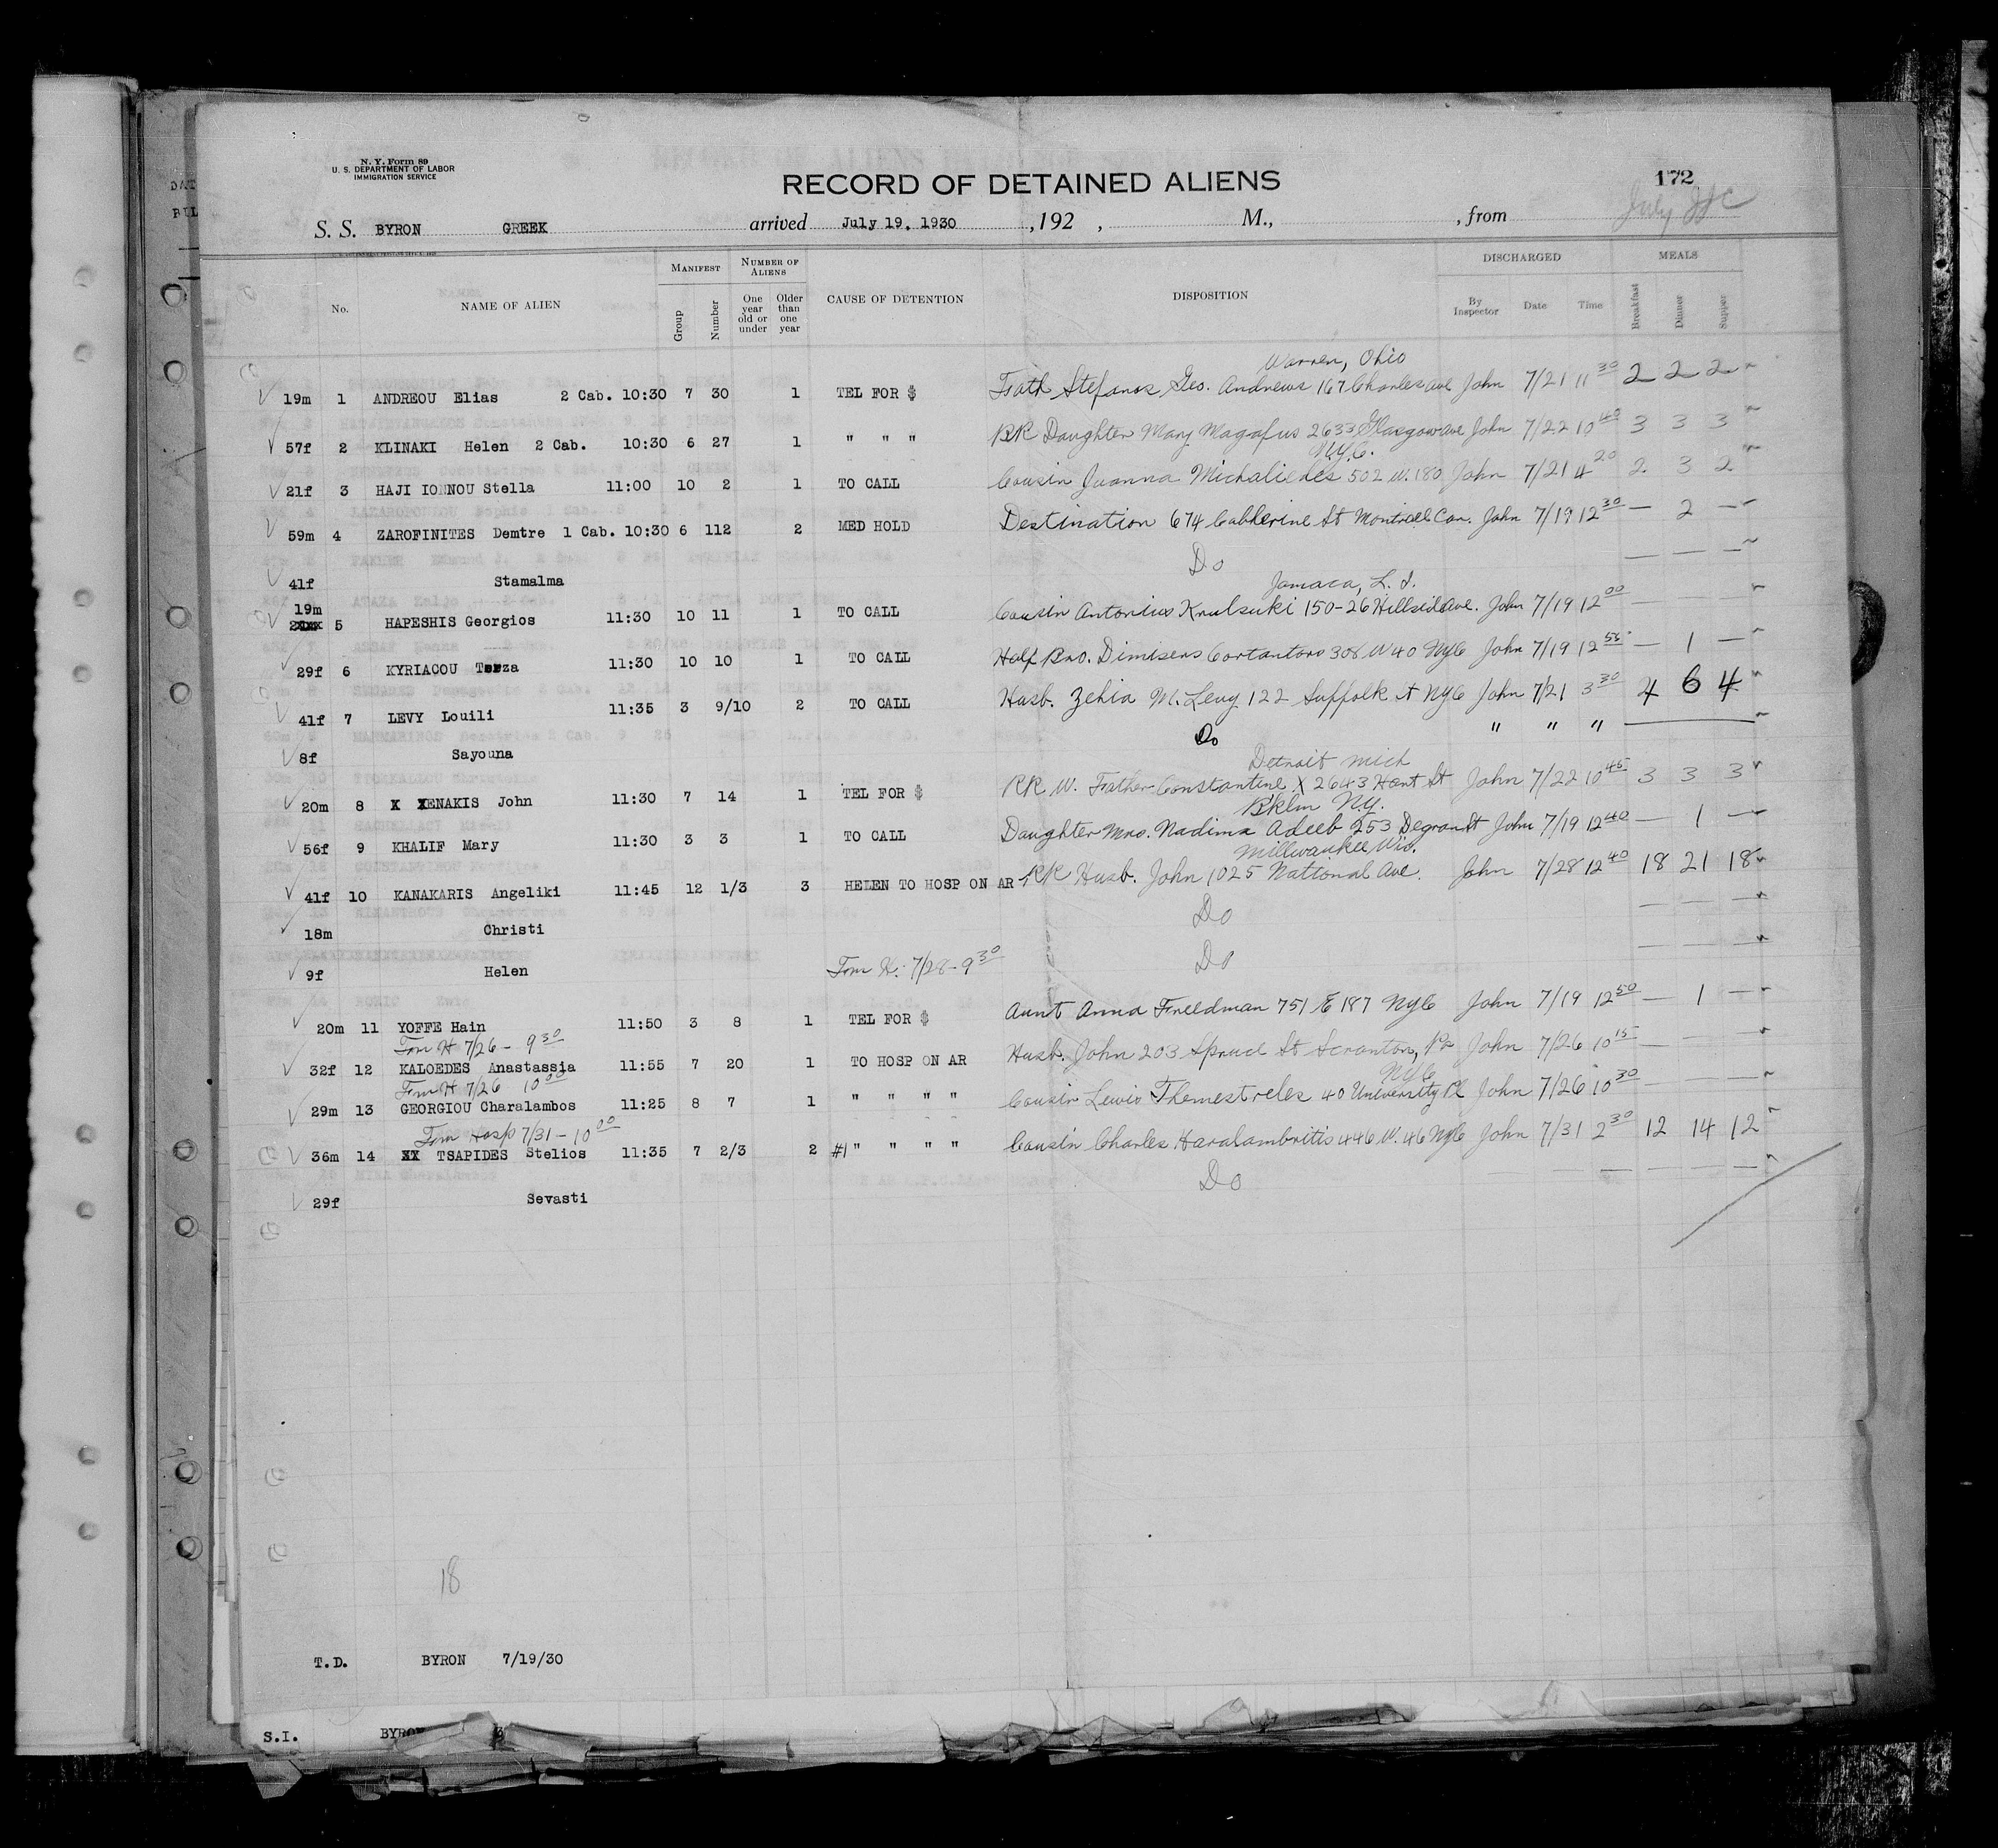 N. Y. Form 89
U. S. DEPARTMENT OF LABOR
IMMIGRATION SERVICE
172
RECORD OF DETAINED ALIENS
S. S. BYRON GREEK arrived July 19, 1930 , 192 , M., , from
July
No. NAME OF ALIEN MANIFEST Group Number NUMBER OF ALIENS One year old or under Older than one year CAUSE OF DETENTION DISPOSITION DISCHARGED By Inspector Date Time MEALS Breakfast Dinner Supper
Warren, Ohio
19m 1 ANDREOU Elias 2 Cab. 10:30 7 30 1 TEL FOR $ Fath Stefanos Geo. Andrews 167 Charles ave John 7/21 11 30 2 2 2
57f 2 KLINAKI Helen 2 Cab. 10:30 6 27 1 " " " RR Daughter Mary Magafus 2633 Glasgow ave John 7/22 10 40 3 3 3
N.Y.C.
21f 3 HAJI IONNOU Stella 11:00 10 2 1 TO CALL Cousin Juanna Michaliedes 502 W. 180 John 7/21 4 20 2 3 2
59m 4 ZAROFINITES Demtre 1 Cab. 10:30 6 112 2 MED HOLD Destination 674 Catherine St Montreal Can. John 7/19 12 30 — 2 —
41f Stamalma Do — — —
Jamaca, L. I.
19m
5 HAPESHIS Georgios 11:30 10 11 1 TO CALL Cousin Antonius 150-26 Hillside Ave. John 7/19 12 00 — — —
29f 6 KYRIACOU Terza 11:30 10 10 1 TO CALL Half Bro. 308 W 40 NYC John 7/19 12 55 — 1 —
41f 7 LEVY Louili 11:35 3 9/10 2 TO CALL Husb. Zehia M. Levy 122 Suffolk st NYC John 7/21 3 30 4 6 4
8f Sayouna Do " " "
Detroit Mich
20m 8 X XENAKIS John 11:30 7 14 1 TEL FOR $ RR W. Father Constantine X 2643 St John 7/22 10 45 3 3 3
Bklm N.Y.
56f 9 KHALIF Mary 11:30 3 3 1 TO CALL Daughter Mrs. Nadima Adeeb 253 Degraw St John 7/19 12 40 — 1 —
Millwaukee Wis.
41f 10 KANAKARIS Angeliki 11:45 12 1/3 3 HELEN TO HOSP ON AR RR Husb. John 1025 National Ave. John 7/28 12 40 18 21 18
18m Christi Do — — —
9f Helen Fom H. 7/28 - 9 30 Do — — —
20m 11 YOFFE Hain 11:50 3 8 1 TEL FOR $ Aunt Anna Freedman 751 E 187 NYC John 7/19 12 50 — 1 —
Fom H 7/26 - 9 30
32f 12 KALOEDES Anastassia 11:55 7 20 1 TO HOSP ON AR Husb. John 203 Spruce St Scranton, Pa John 7/26 10 15 — — —
Fom H 7/26 10 00
NYC
29m 13 GEORGIOU Charalambos 11:25 8 7 1 " " " " Cousin Lewis Themestreles 40 University Pl John 7/26 10 30 — — —
Fom Hosp 7/31 - 10 00
36m 14 XX TSAPIDES Stelios 11:35 7 2/3 2 #1 " " " " Cousin Charles Haralambritis 446 W. 46 NYC John 7/31 2 30 12 14 12
29f Sevasti Do — — — — — —
18
T.D. BYRON 7/19/30
S.I. BYRON